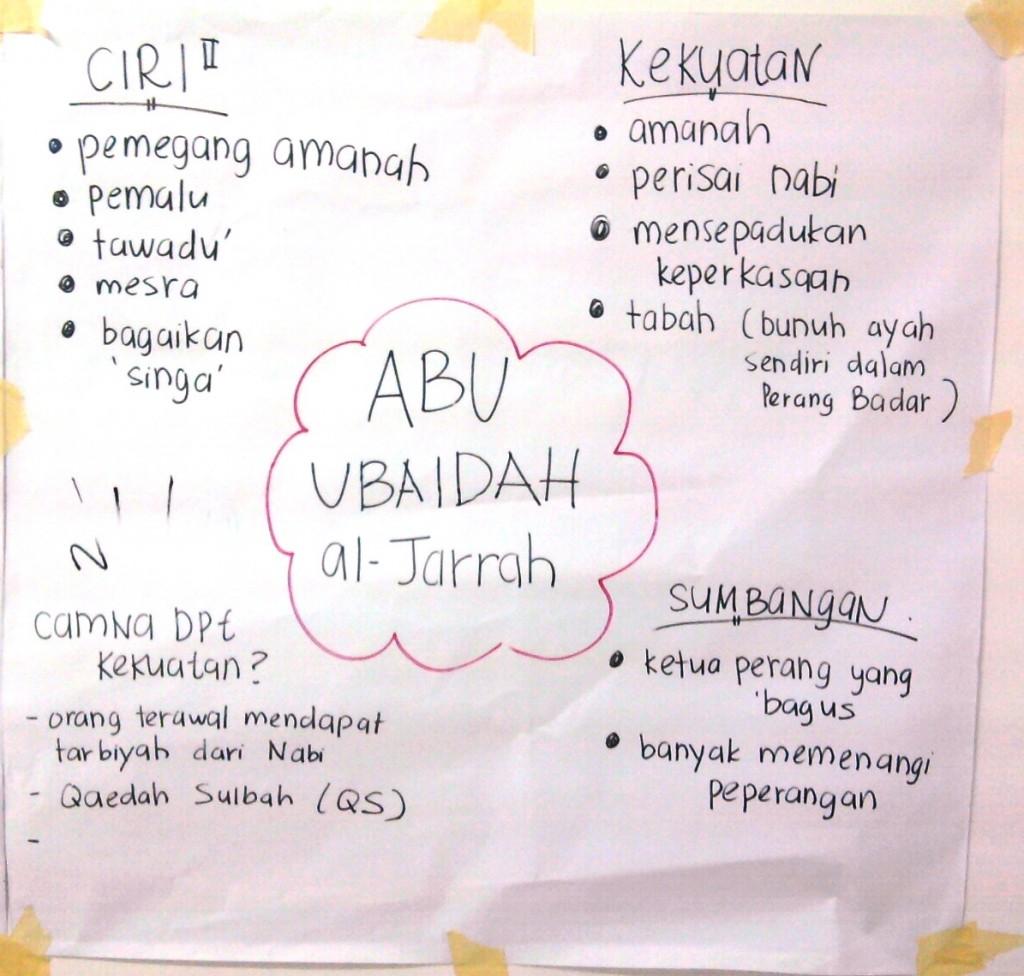 CIRI II
• pemegang amanah
• pemalu
• tawadu'
• mesra
• bagaikan
'singa'
Kekuatan
• amanah
• perisai nabi
• mensepadukan
keperkasaan
• tabah (bunuh ayah
sendiri dalam
Perang Badar)
ABU
UBAIDAH
al-Jarrah
camna DPt
kekuatan?
- orang terawal mendapat
tarbiyah dari Nabi
- Qaedah Sulbah (QS)
-
SUMBANGAN.
• ketua perang yang
'bagus
• banyak memenangi
peperangan